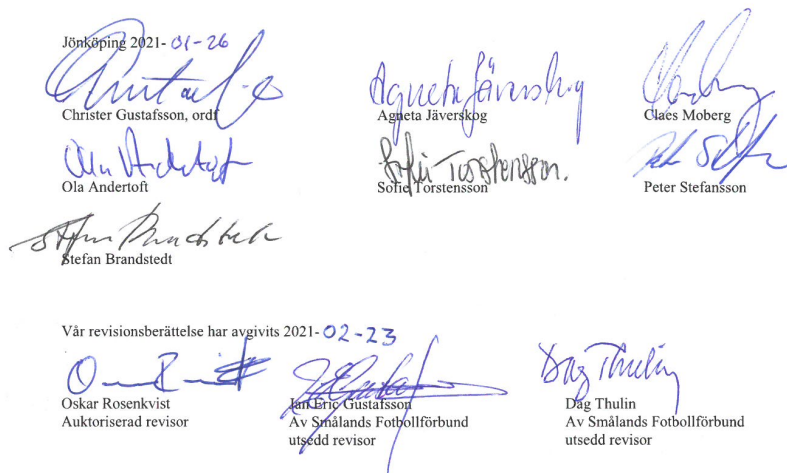 Jönköping 2021- 01-26
Christer Gustafsson, ordf
Agneta Jäverskog
Agneta Jäverskog
Claes Moberg
Ola Andertoft
Ola Andertoft
Sofie Torstensson.
Sofie Torstensson
Peter Stefansson
Stefan Brandstedt
Stefan Brandstedt
Vår revisionsberättelse har avgivits 2021- 02-23
Oskar Rosenkvist
Auktoriserad revisor
Jan Eric Gustafsson
Av Smålands Fotbollförbund
utsedd revisor
Dag Thulin
Dag Thulin
Av Smålands Fotbollförbund
utsedd revisor